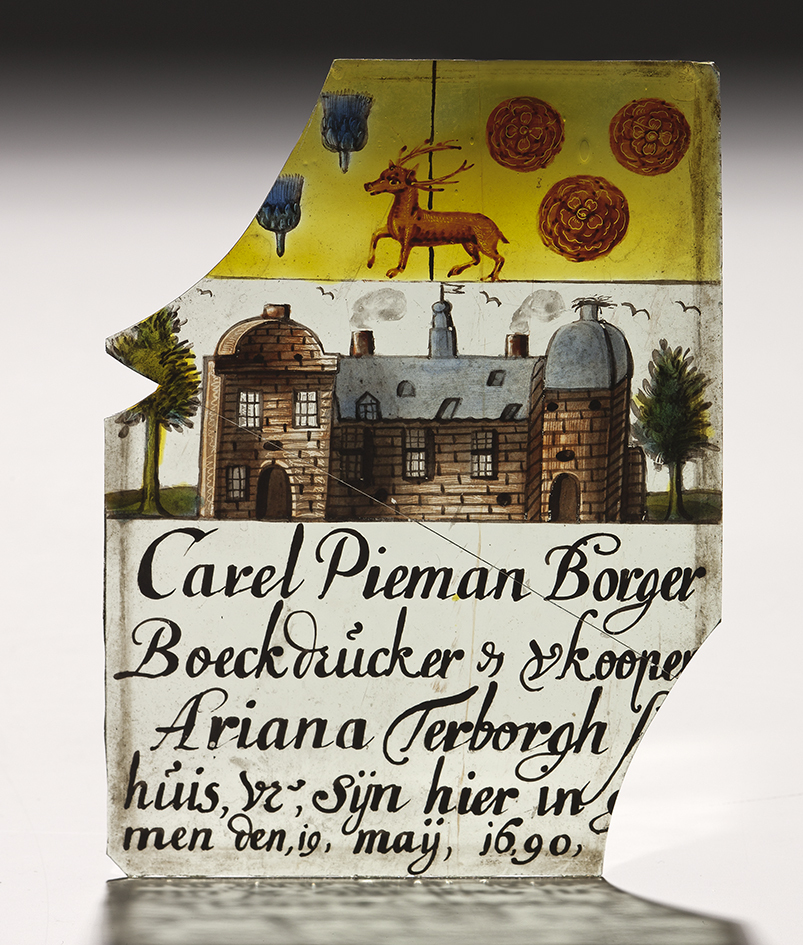 Carel Pieman Borger
Boeckdrücker & vkooper
Ariana Terborgh
hüis, Vr, Sÿn hier in
men den, 19, maÿ, 1690,